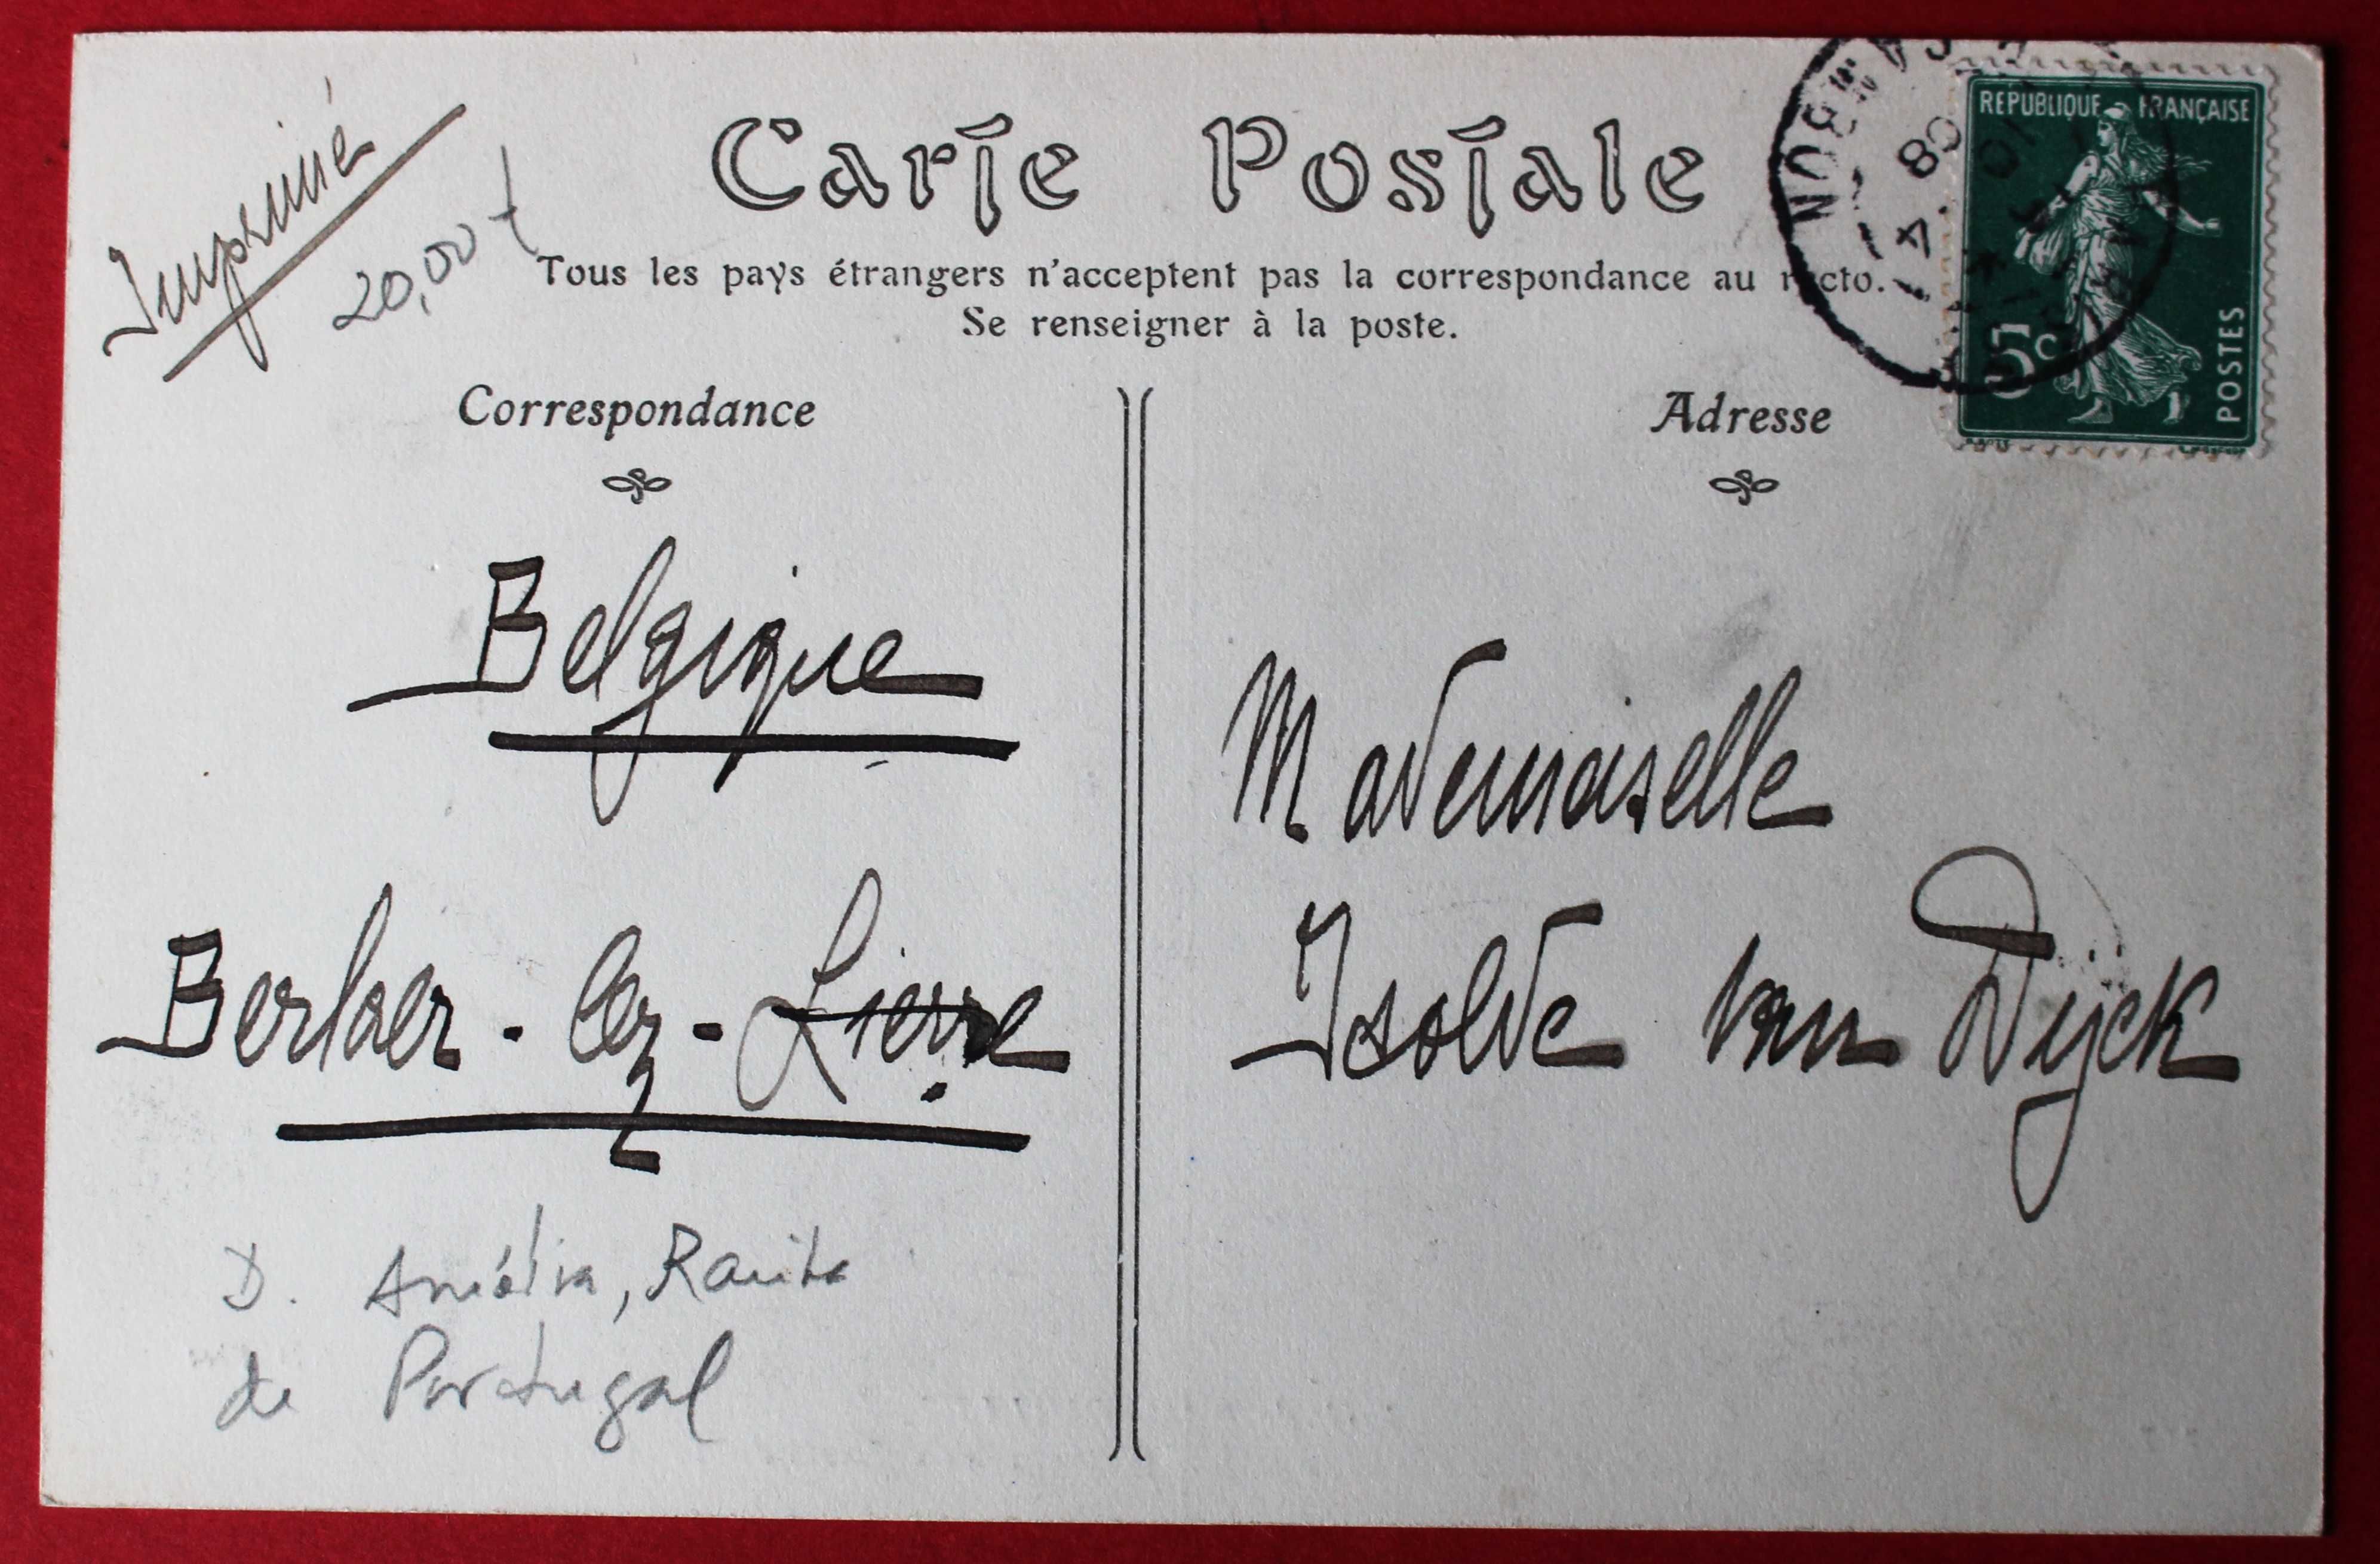 Imprimé
20,00
Carte Postale
Tous les pays étrangers n'acceptent pas la correspondance au recto.
Se renseigner à la poste.
REPUBLIQUE FRANÇAISE
5c
POSTES
08
Correspondance
Adresse
Belgique
Berlaer-lez-Lierre
Mademoiselle
Isolde van Dijck
D. Amélia, Rainha
de Portugal